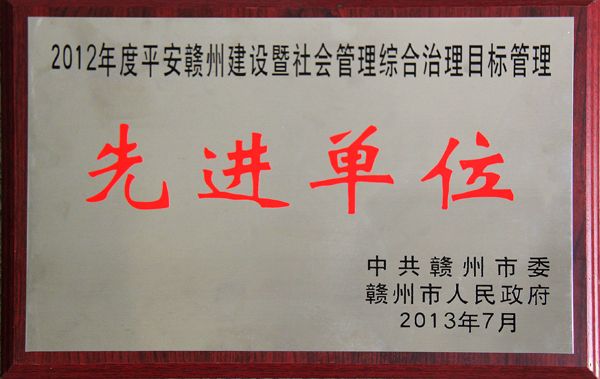 2012年度平安赣州建设暨社会管理综合治理目标管理
先进单位
中共赣州市委
赣州市人民政府
2013年7月